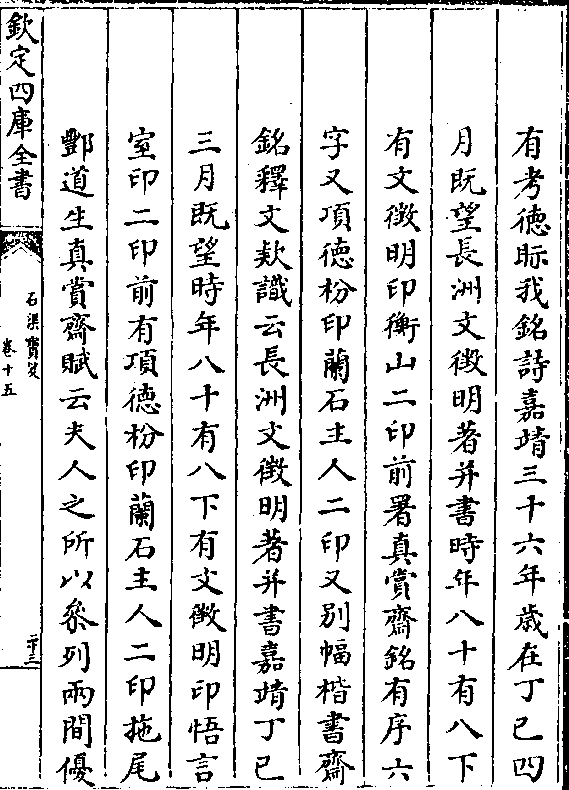 有考徳眎我銘詩嘉靖三十六年歳在丁已四
月既望長洲文徴明著并書時年八十有八下
有文徴明印衡山二印前署真賞齋銘有序六
字又項徳枌印蘭石主人二印又别幅楷書齋
銘釋文欵識云長洲文徴明著并書嘉靖丁已
三月既望時年八十有八下有文徴明印悟言
室印二印前有項徳枌印蘭石主人二印拖尾
酆道生真賞齋賦云夫人之所以叅列兩間優
欽定四庫全書
石渠寳笈
卷十五
二十三